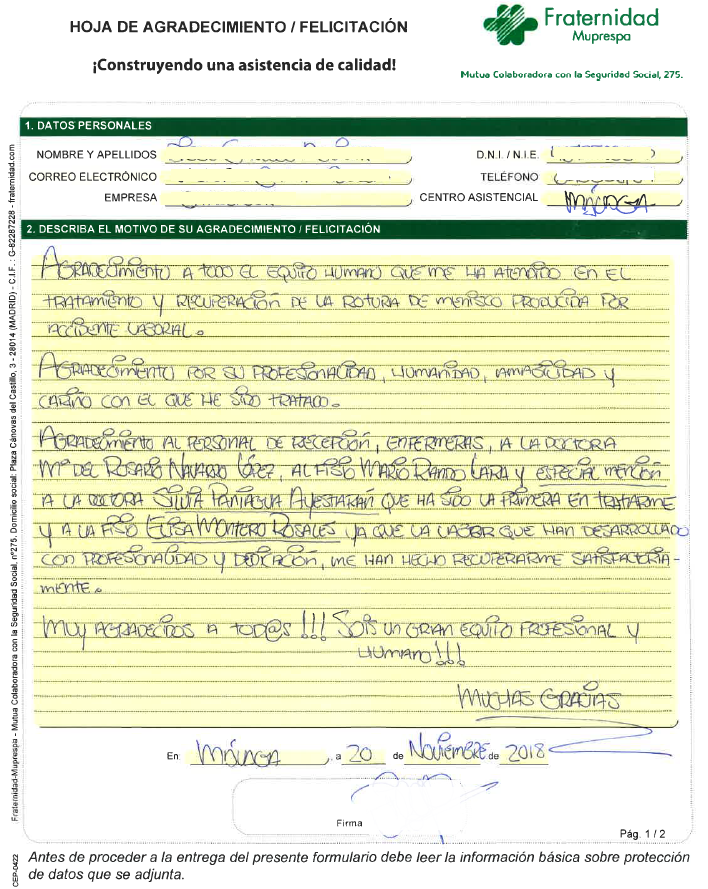 HOJA DE AGRADECIMIENTO / FELICITACIÓN
¡Construyendo una asistencia de calidad!
Fraternidad
Muprespa
Mutua Colaboradora con la Seguridad Social, 275.
1. DATOS PERSONALES
NOMBRE Y APELLIDOS
D.N.I. / N.I.E.
CORREO ELECTRÓNICO
TELÉFONO
EMPRESA
CENTRO ASISTENCIAL MÁLAGA
2. DESCRIBA EL MOTIVO DE SU AGRADECIMIENTO / FELICITACIÓN
AGRADECIMIENTO A TODO EL EQUIPO HUMANO QUE ME HA ATENDIDO EN EL
TRATAMIENTO Y RECUPERACIÓN DE LA ROTURA DE MENISCO PRODUCIDA POR
ACCIDENTE LABORAL.
AGRADECIMIENTO POR SU PROFESIONALIDAD, HUMANIDAD, AMABILIDAD Y
CARIÑO CON EL QUE HE SIDO TRATADO.
AGRADECIMIENTO AL PERSONAL DE RECEPCIÓN, ENFERMERAS, A LA DOCTORA
Mª DEL ROSARIO NAVARRO LÓPEZ, AL FISIO MARIO RANDO LARA Y ESPECIAL MENCIÓN
A LA DOCTORA SILVIA PANIAGUA AYESTARÁN QUE HA SIDO LA PRIMERA EN TRATARME
Y A LA FISIO ELISA MONTERO ROSALES YA QUE LA LABOR QUE HAN DESARROLLADO
CON PROFESIONALIDAD Y DEDICACIÓN, ME HAN HECHO RECUPERARME SATISFACTORIA-
MENTE.
MUY AGRADECIDOS A TOD@S!!! SOIS UN GRAN EQUIPO PROFESIONAL Y
HUMANO!!!
MUCHAS GRACIAS
En MÁLAGA, a 20 de NOVIEMBRE de 2018
Firma
Pág. 1 / 2
Antes de proceder a la entrega del presente formulario debe leer la información básica sobre protección
de datos que se adjunta.
Fraternidad-Muprespa - Mutua Colaboradora con la Seguridad Social, nº275. Domicilio social: Plaza Cánovas del Castillo, 3 - 28014 (MADRID) - C.I.F.: G-82287228 - fraternidad.com
CEP-0422